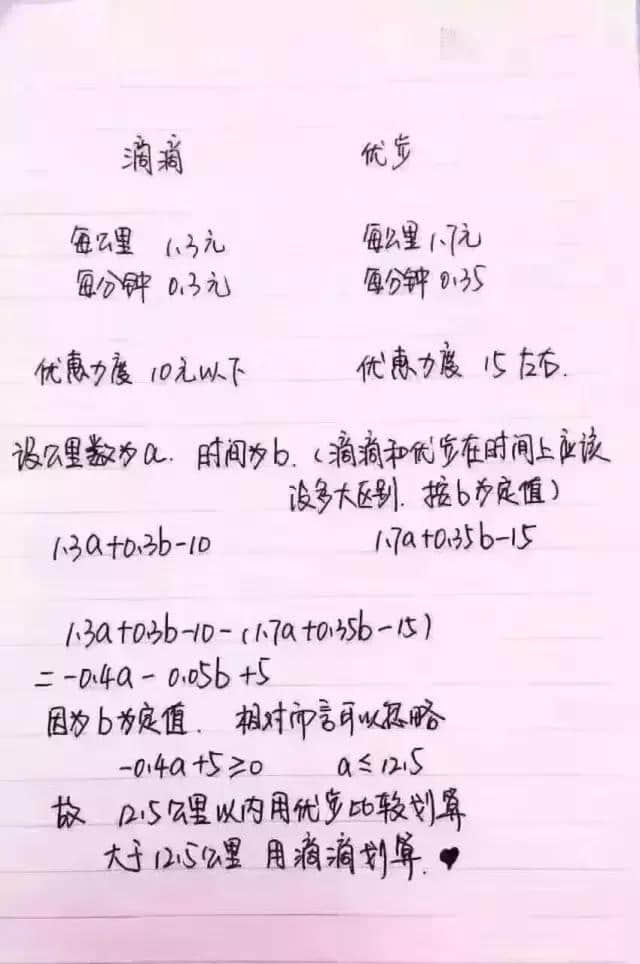 滴滴 优步
每公里 1.3元 每公里 1.7元
每分钟 0.3元 每分钟 0.35
优惠力度 10元以下 优惠力度 15左右.
设公里数为a. 时间为b.(滴滴和优步在时间上应该
没多大区别. 按b为定值)
1.3a+0.3b-10 1.7a+0.35b-15
1.3a+0.3b-10-(1.7a+0.35b-15)
=-0.4a-0.05b+5
因为b为定值. 相对而言可以忽略
-0.4a+5≥0 a≤12.5
故 12.5公里以内用优步比较划算
大于12.5公里 用滴滴划算.♥